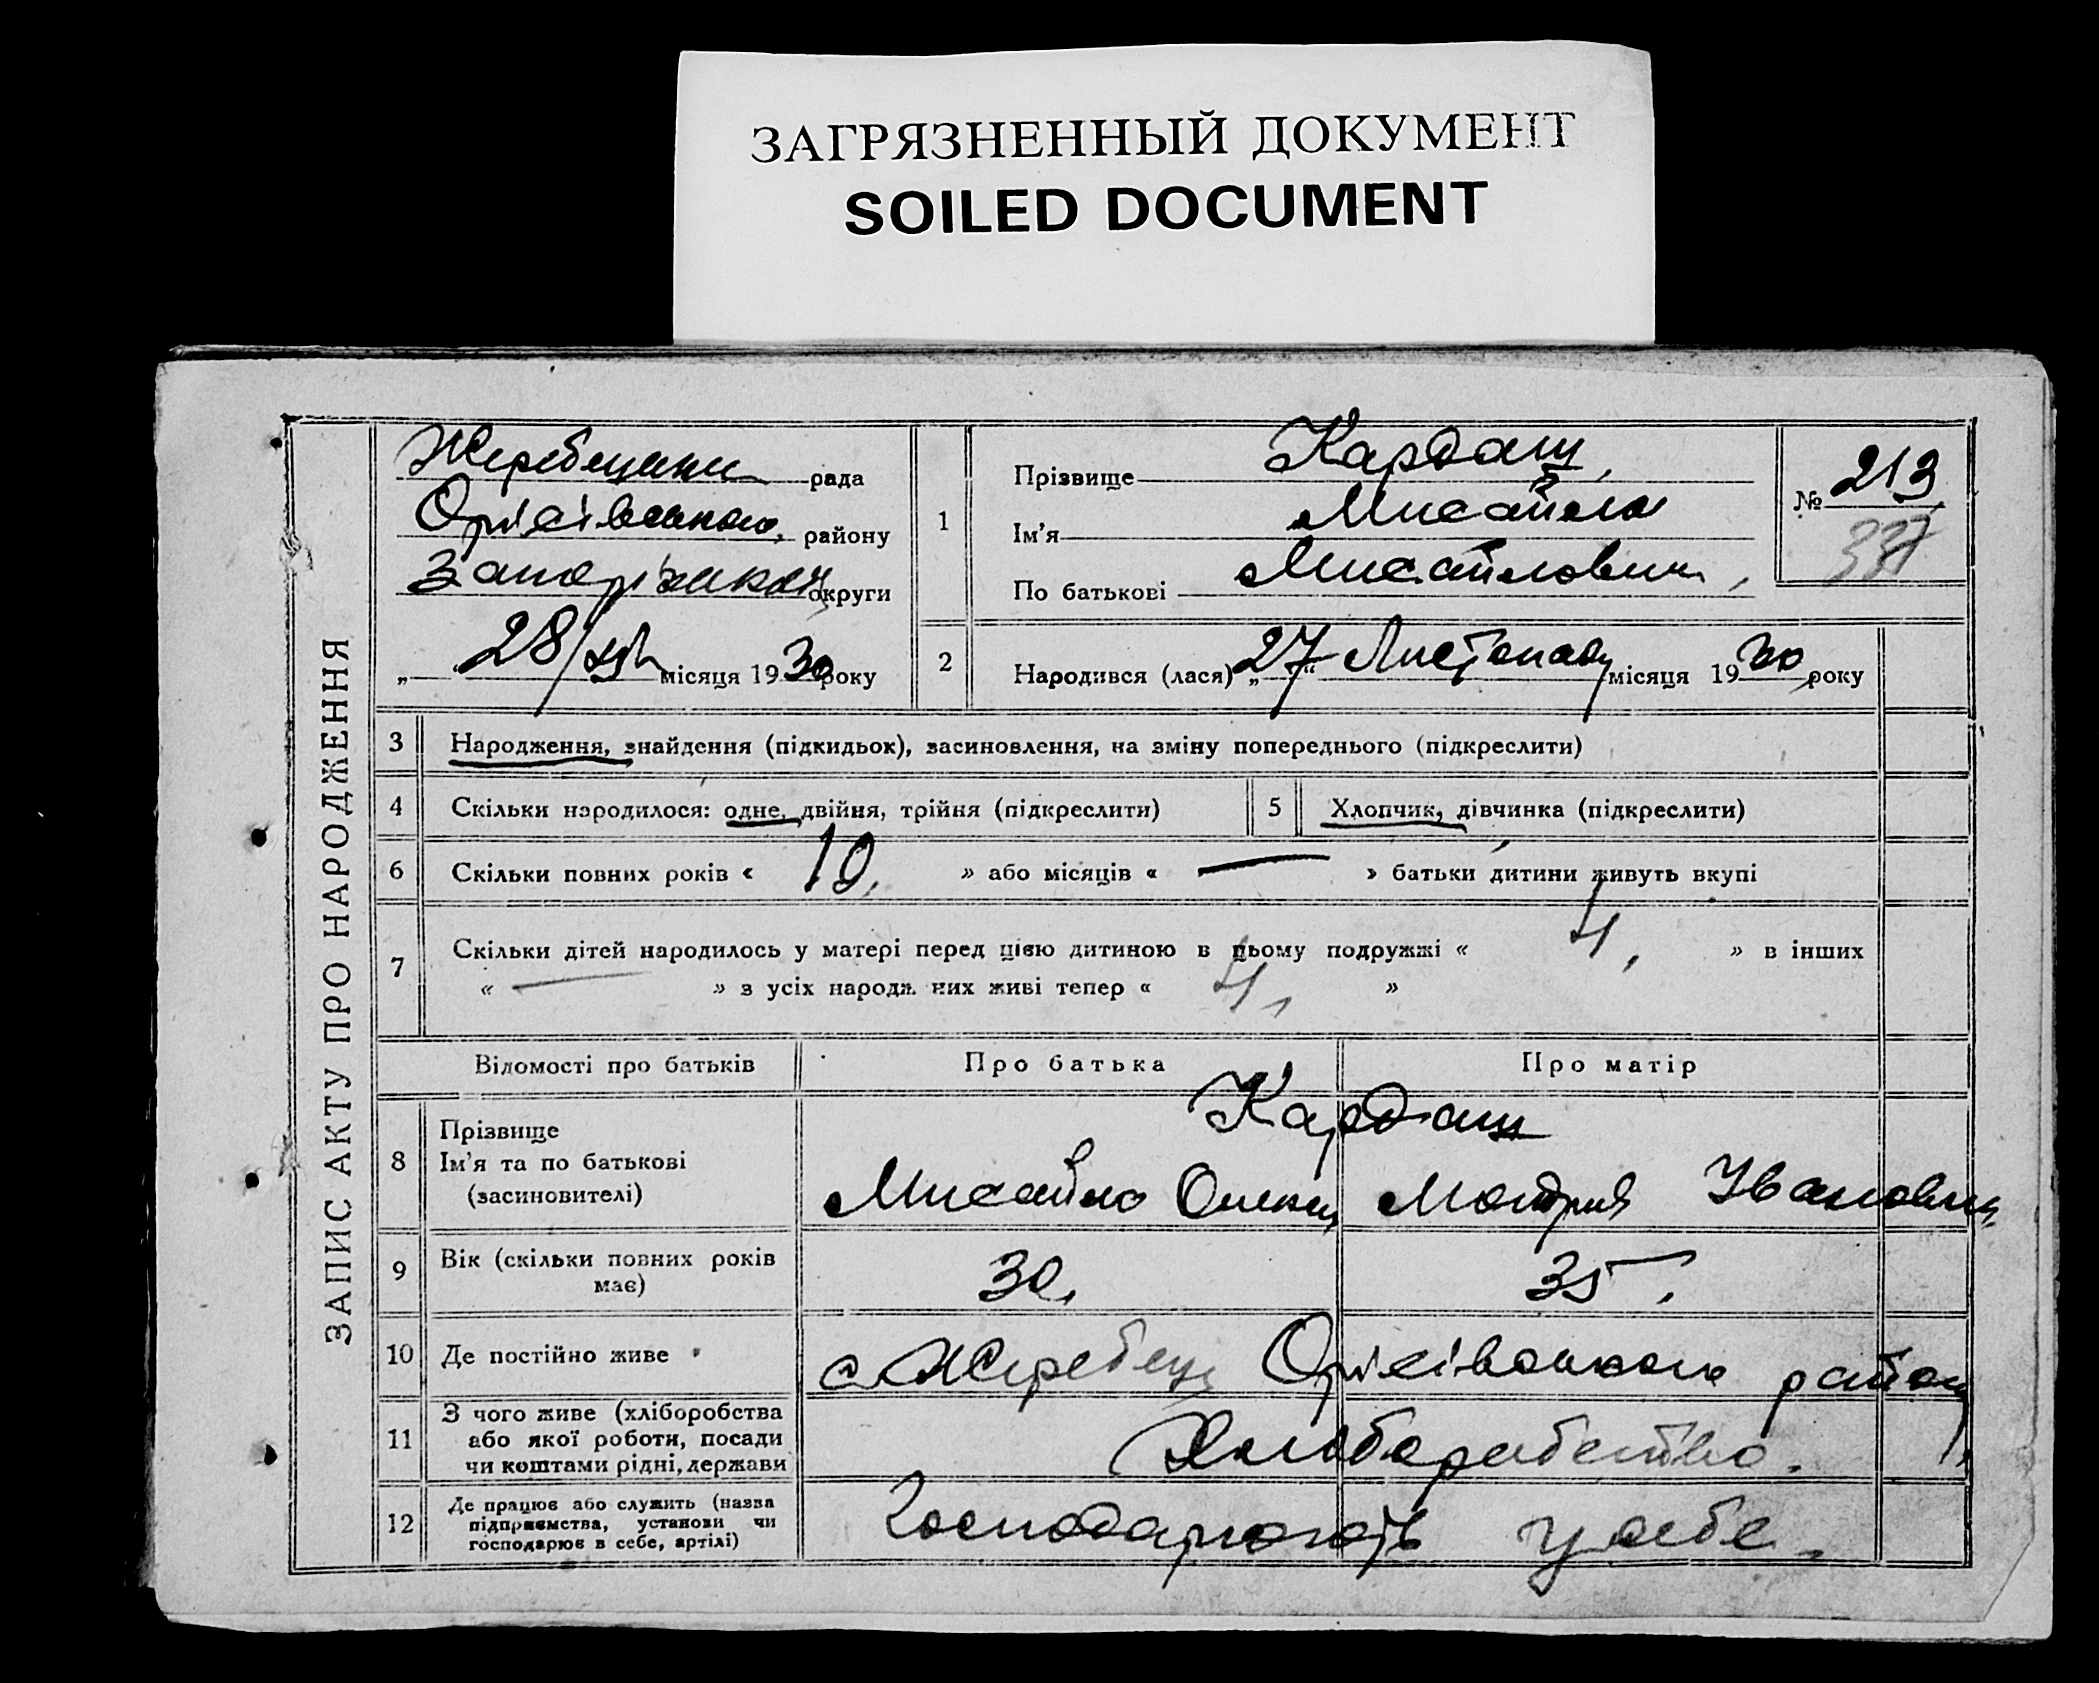 ЗАГРЯЗНЕННЫЙ ДОКУМЕНТ
SOILED DOCUMENT
ЗАПИС АКТУ ПРО НАРОДЖЕННЯ
рада
Оріхівського, району
Запорізької округи
„ 28/ місяця 1930 року
1
Прізвище Кардаш,
Ім'я Михайло
По батькові Михайлович,
№ 213
337
2 Народився (лася) „27“ Листопаду місяця 1930 року
3 Народження, знайдення (підкидьок), засиновлення, на зміну попереднього (підкреслити)
4 Скільки народилося: одне, двійня, трійня (підкреслити) 5 Хлопчик, дівчинка (підкреслити)
6 Скільки повних років « 10, » або місяців « — » батьки дитини живуть вкупі
7 Скільки дітей народилось у матері перед цією дитиною в цьому подружжі « 4, » в інших
« — » з усіх народж них живі тепер « 4, »
Відомості про батьків Про батька Про матір
8 Прізвище
Ім'я та по батькові
(засиновителі)
Кардаш
Михайло Мотрія Івановна
9 Вік (скільки повних років
має)
30, 35,
10 Де постійно живе с Жеребець Оріхівського району
11 З чого живе (хліборобства
або якої роботи, посади
чи коштами рідні, держави
Хліборобство.
12 Де працює або служить (назва
підприємства, установи чи
господарює в себе, артілі)
Господарюють у себе.